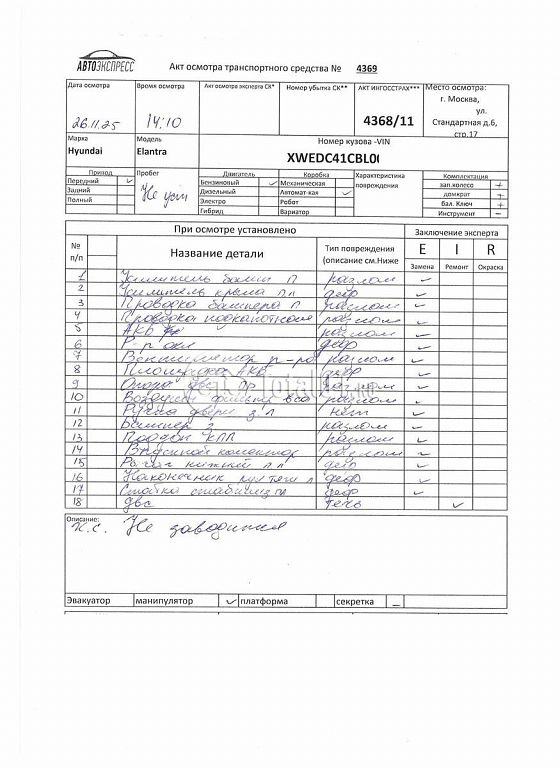 АВТОЭКСПРЕСС
Акт осмотра транспортного средства № 4369
Дата осмотра
Время осмотра
Акт осмотра эксперта СК*
Номер убытка СК**
АКТ ИНГОССТРАХ***
Место осмотра:
г. Москва,
ул.
Стандартная д.6,
стр.17
26.11.25
14:10
4368/11
Марка
Модель
Номер кузова -VIN
Hyundai
Elantra
XWEDC41CBL0
Привод
Пробег
Двигатель
Коробка
Характеристика
повреждения
Комплектация
Передний ✓
Бензиновый ✓
Механическая
зап.колесо +
Задний
Дизельный
Автомат-кая ✓
домкрат +
Полный
Электро
Робот
бал. Ключ +
Гибрид
Вариатор
Инструмент –
Не уст
При осмотре установлено
Заключение эксперта
№
п/п
Название детали
Тип повреждения
(описание см.Ниже
E I R
Замена Ремонт Окраска
1 Усилитель балки п разлом ✓
2 Усилитель крыла п.п деф ✓
3 Проводка бампера п разлом ✓
4 Проводка подкапотная разлом ✓
5 АКБ разлом ✓
6 деф ✓
7 Вентилятор разлом ✓
8 Площадка АКБ деф ✓
9 Опора двс пр разлом ✓
10 фильтр разлом ✓
11 Ручка двери з.л нет ✓
12 Бампер з разлом ✓
13 Поддон КПП разлом ✓
14 Впускной коллектор разлом ✓
15 Рычаг нижний п.л деф ✓
16 Наконечник деф ✓
17 Стойка стабилиз деф ✓
18 двс течь ✓
Описание:
Не заводится
Эвакуатор
манипулятор ✓
платформа
секретка –